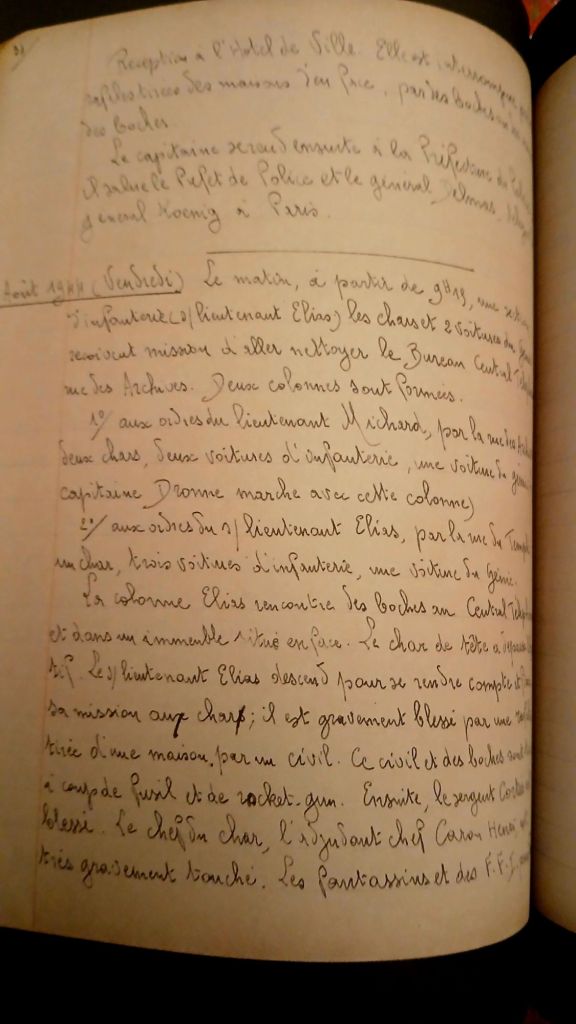 Reception à l'Hotel de Ville. Elle est interrompue
rafales tirées des maisons d'en face, par des boches
des boches.
Le capitaine se rend ensuite à la Préfecture de
il salue le Préfet de Police et le général Delmas,
général Koenig à Paris.
Août 1944 (Vendredi) Le matin, à partir de 9h19, une section
d'infanterie (s/lieutenant Elias) les chars et 2 voitures du Génie
reçoivent mission d'aller nettoyer le Bureau Central
rue des Archives. Deux colonnes sont formées.
1°/ aux ordres du lieutenant Michard, par la rue des
deux chars, deux voitures d'infanterie, une voiture du génie
capitaine Dronne marche avec cette colonne)
2°/ aux ordres du s/lieutenant Elias, par la rue du Temple
un char, trois voitures d'infanterie, une voiture du Génie.
La colonne Elias rencontre des boches au Central
et dans un immeuble situé en face. Le char de tête a
tif. Le s/lieutenant Elias descend pour se rendre compte et
sa mission aux chars; il est gravement blessé par une
tirée d'une maison par un civil. Ce civil et des boches sont
à coup de fusil et de rocket-gun. Ensuite, le sergent
blessé. Le chef du char, l'adjudant chef Caron Henri
très gravement touché. Les fantassins et des F.F.I.